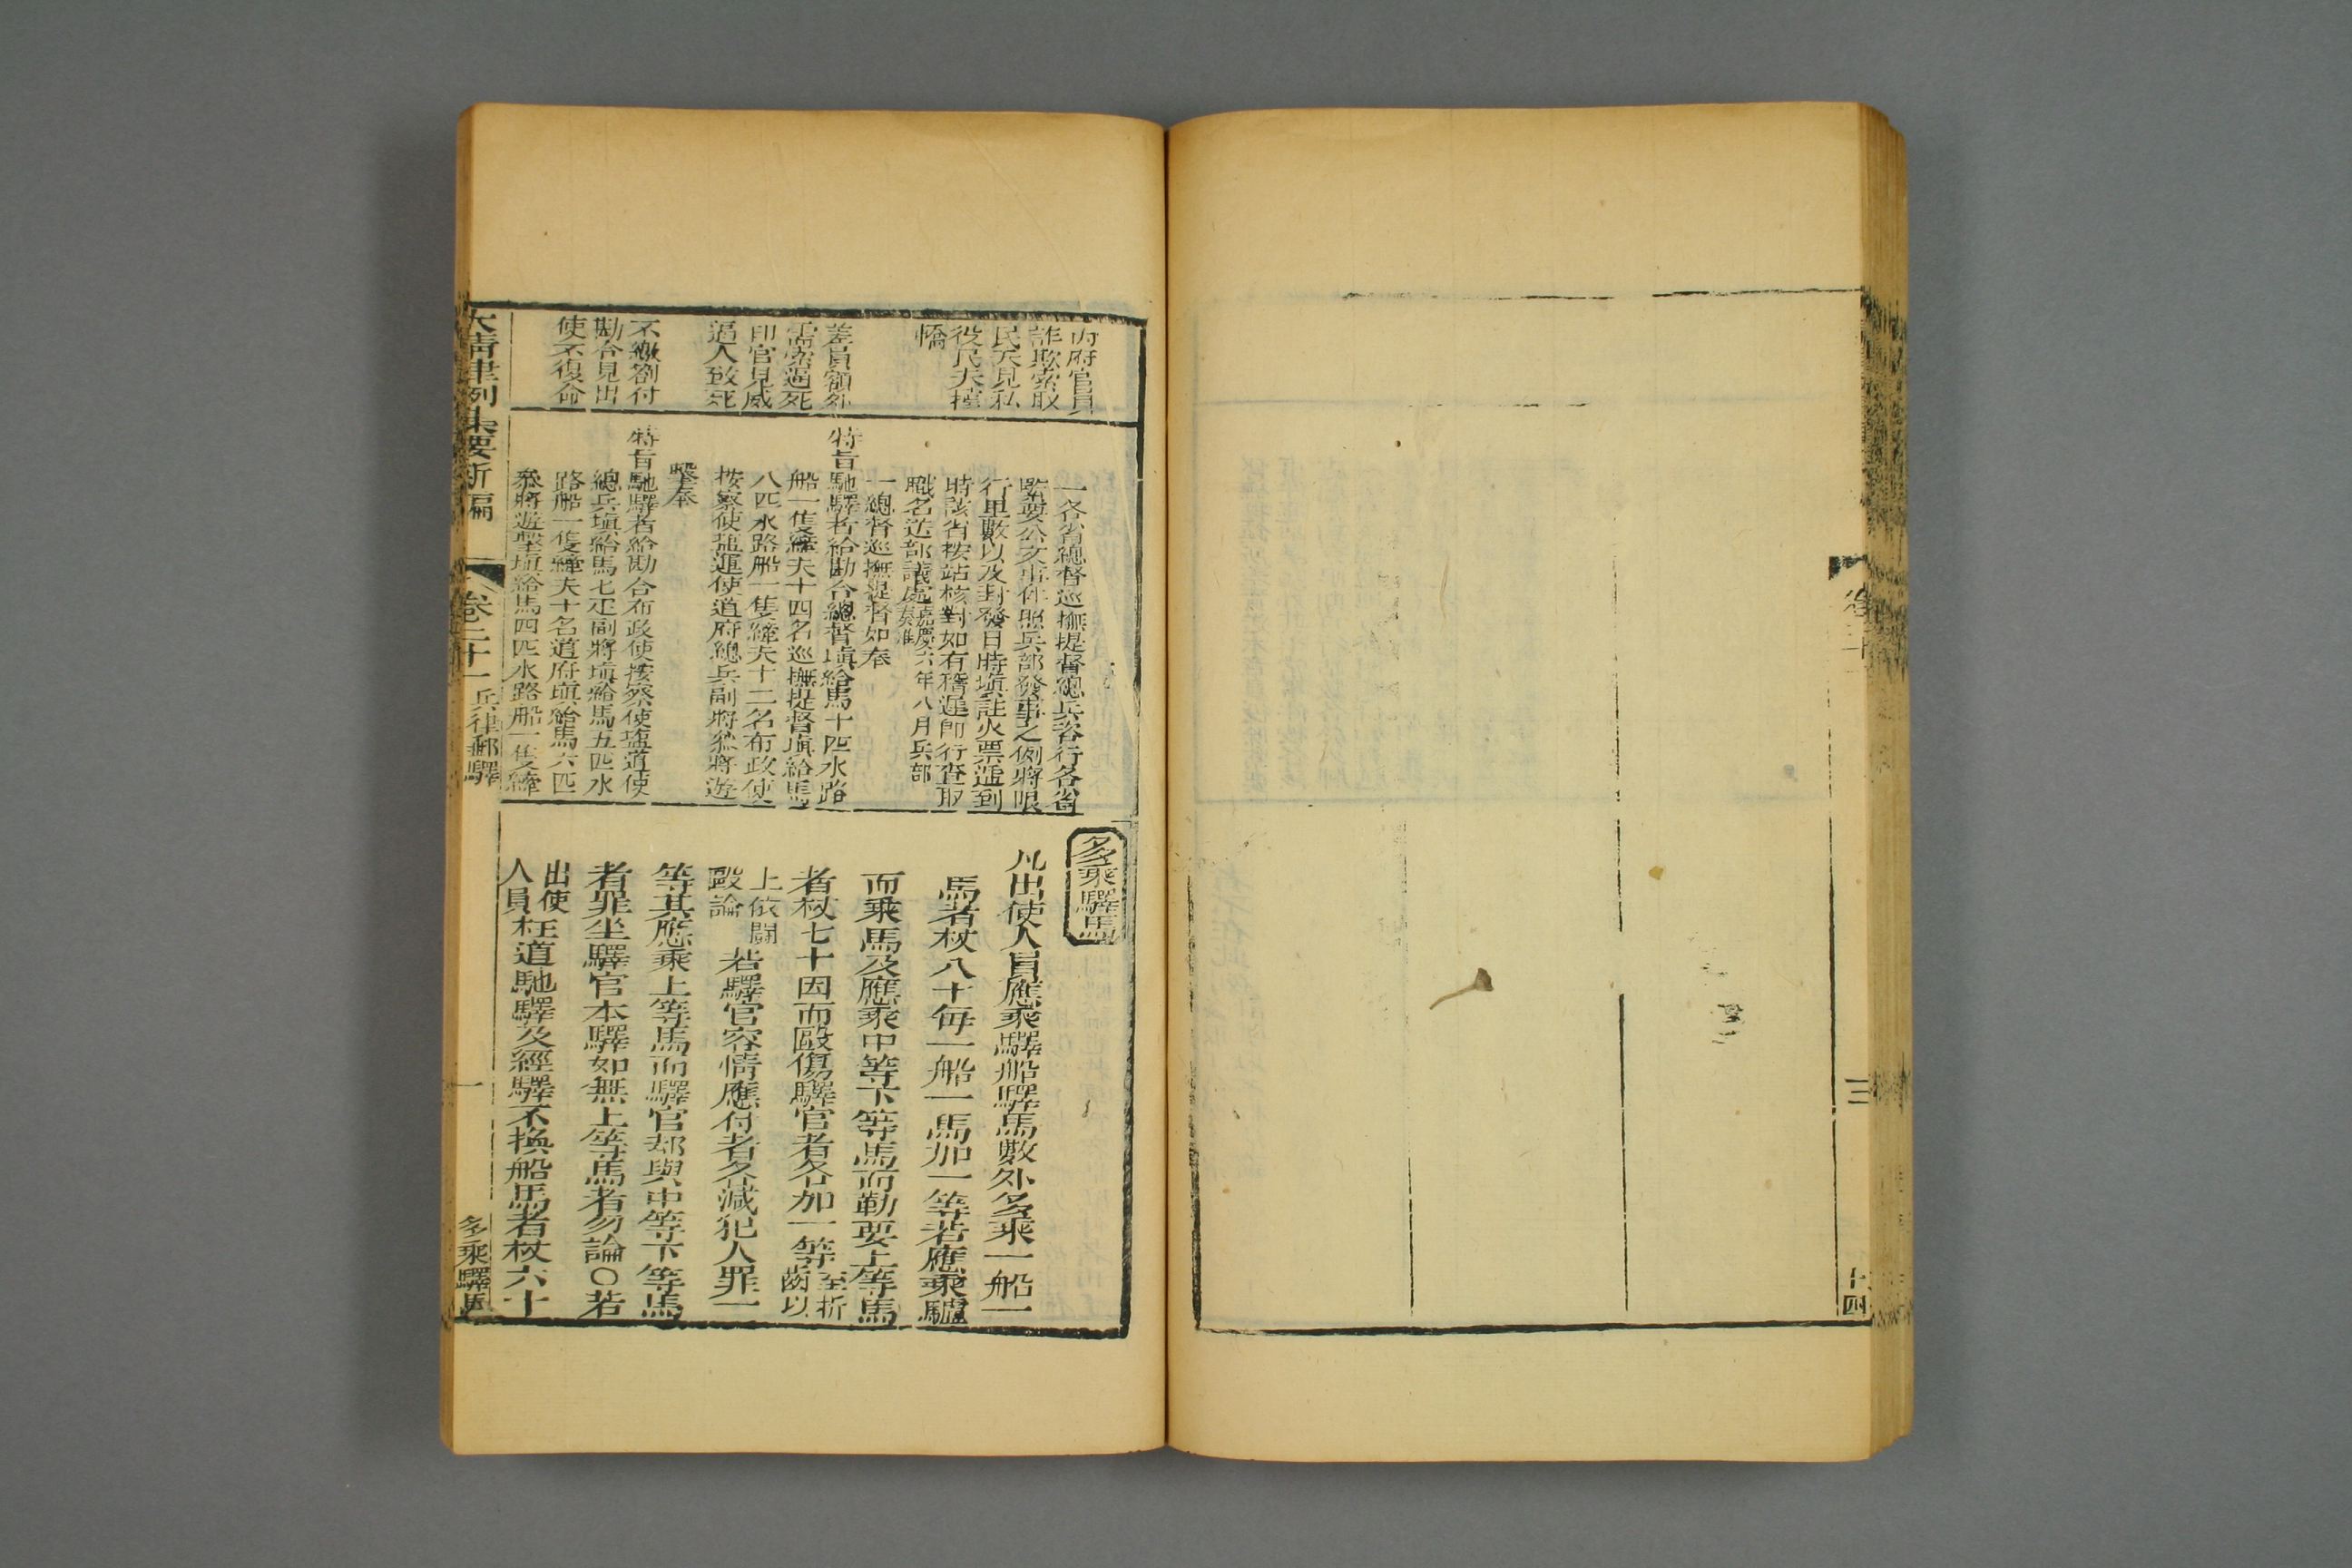 卷二十
三
十四
內府官員
詐欺索取
民夫見私
役民夫擡
轎
差員額外
需索逼死
印官見威
逼人致死
不繳劄付
勘合見出
使不復命
一各省總督巡撫提督總兵咨行各省
緊要公文事件照兵部發事之例將限
行里數以及封發日時塡註火票遞到
時該省按站核對如有稽遲卽行查取
職名送部議處嘉慶六年八月兵部
奏准
一總督巡撫提督如奉
特旨馳驛者給勘合總督塡給馬十匹水路
船一隻縴夫十四名巡撫提督塡給馬
八匹水路船一隻縴夫十二名布政使
按察使塩運使道府總兵副將叅將遊
擊奉
特旨馳驛者給勘合布政使按察使塩道使
總兵塡給馬七匹副將塡給馬五匹水
路船一隻縴夫十名道府塡給馬六匹
叅將遊擊塡給馬四匹水路船一隻縴
多乘驛馬
凡出使人員應乘驛船驛馬數外多乘一船一
馬者杖八十每一船一馬加一等若應乘驢
而乘馬及應乘中等下等馬而勒要上等馬
者杖七十因而毆傷驛官者各加一等至折齒以
上依鬪毆論若驛官容情應付者各減犯人罪一
等其應乘上等馬而驛官却與中等下等馬
者罪坐驛官本驛如無上等馬者勿論○若
出使人員枉道馳驛及經驛不換船馬者杖六十
大淸律例集要新編
卷二十一
兵律郵驛
一
多乘驛馬